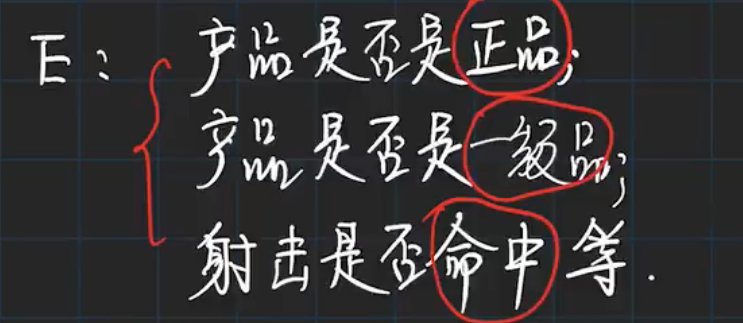 E: 产品是否是正品;
产品是否是一级品;
射击是否命中等.